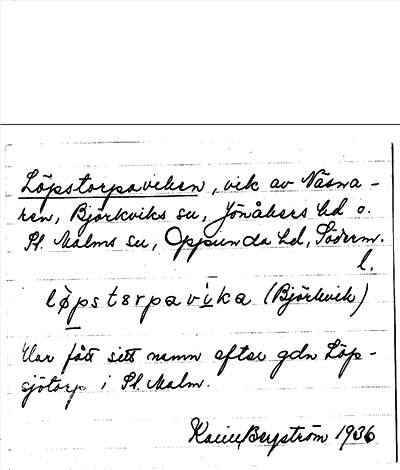 Löpstorpaviken, vik av Näsna-
ren, Björkviks sn, Jönåkers hd o.
St. Malms sn, Oppunda hd, Söderm.
l.
löpsterpavika (Björkvik)
Har fått sitt namn efter gdn Löp-
sjötorp i St. Malm.
Bergström 1936